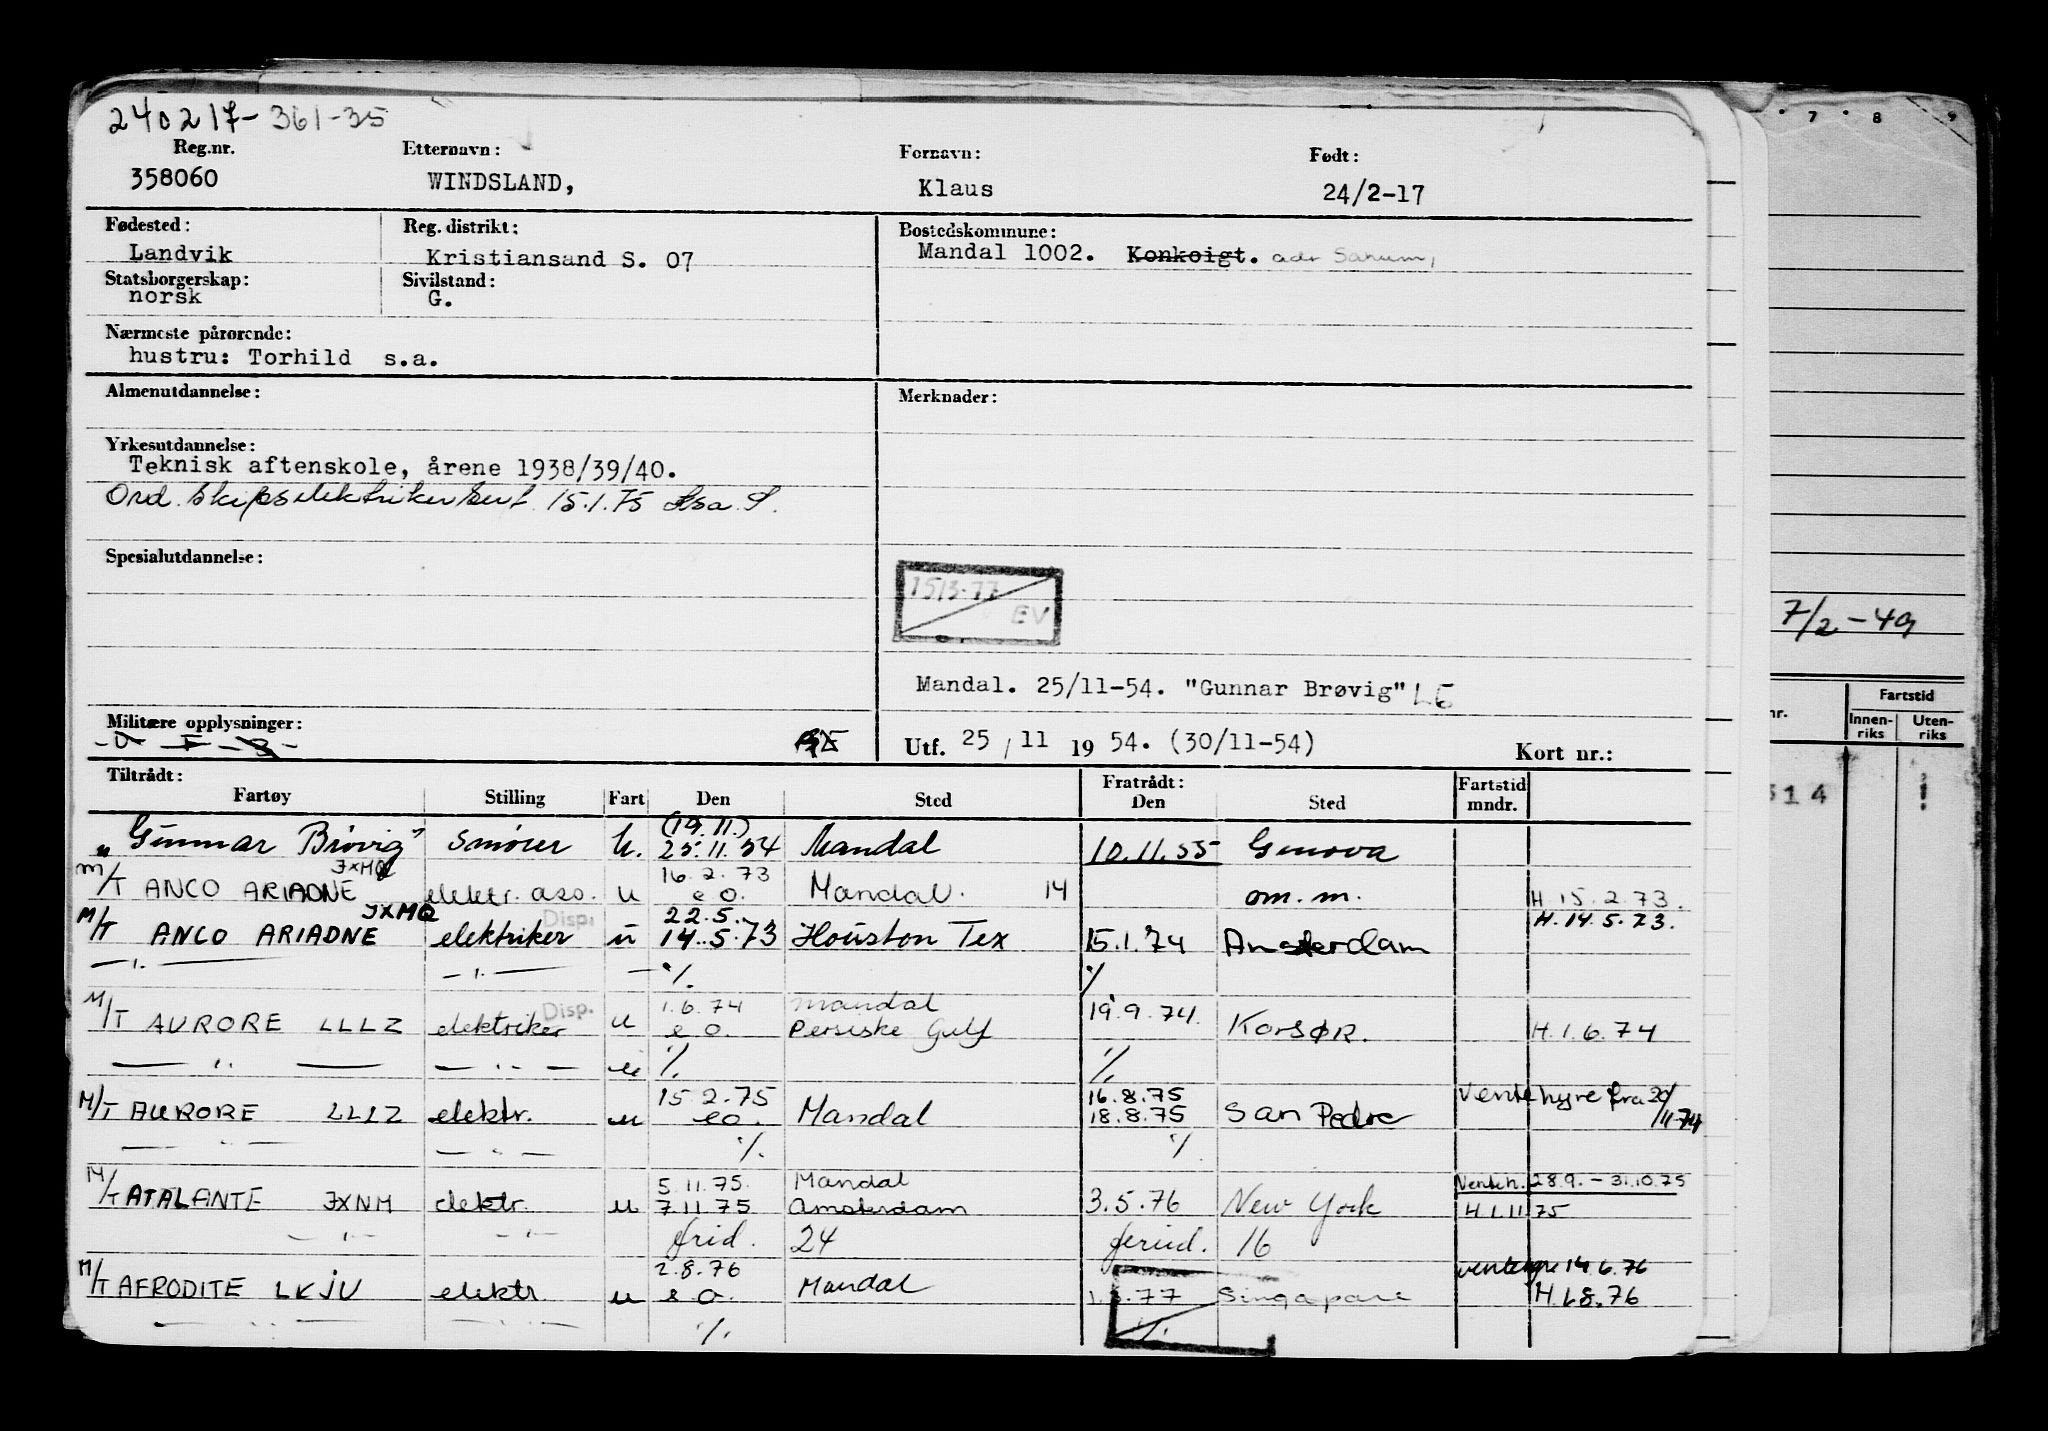 240217-361-35
Reg.nr. Etternavn: Fornavn: Født:
358060 WINDSLAND, Klaus 24/2-17
Fødested: Reg. distrikt: Bostedskommune:
Landvik Kristiansand S. 07 Mandal 1002. Konkoigt. adr
Statsborgerskap: Sivilstand:
norsk G.
Nærmeste pårørende:
hustru: Torhild s.a.
Almenutdannelse: Merknader:
Yrkesutdannelse:
Teknisk aftenskole, årene 1938/39/40.
Ord. Skipselektrikersert. 15.1.75
Spesialutdannelse:
EV
Mandal. 25/11-54. "Gunnar Brøvig" LE
Militære opplysninger:
Utf. 25/11 1954. (30/11-54) Kort nr.:
Tiltrådt: Fratrådt: Fartstid
Fartøy Stilling Fart Den Sted Den Sted mndr.
(19.11.)
"Gunnar Brøvig" smører U. 25.11.54 Mandal 10.11.55 Genova
JXMQ 16.2.73
M/T ANCO ARIADNE elektr. ass. u e o. Mandal. 14 om.m. H 15.2.73.
JXMQ Disp. 22.5. H. 14.5.73.
M/T ANCO ARIADNE elektriker u 14.5.73 Houston Tex 15.1.74 Amsterdam
— " — — " — — ./. ./.
Disp. 1.6.74 Mandal 19.9.74
M/T AURORE LLLZ elektriker u e o. Persiske Gulf KORSØR. H.1.6.74
— " — — " — u ./. ./.
15.2.75 16.8.75 Ventehyre fra 20/11-74
M/T AURORE LLLZ elektr. u eo. Mandal 18.8.75 San Pedro
— " — — " — ./. ./.
5.11.75. Mandal Venteh. 28.9. – 31.10.75
M/T ATALANTE JXNM elektr. u 7.11.75 Amsterdam 3.5.76 New York H 1.11.75
— " — — " — frid. 24 16
2.8.76 14.6.76
M/T AFRODITE LKJU elektr. u e o. Mandal Singapore H.1.8.76
— " — — " — ./. ./.
7 8 9
7/2-49
nr. Fartstid
Innenriks Utenriks
314